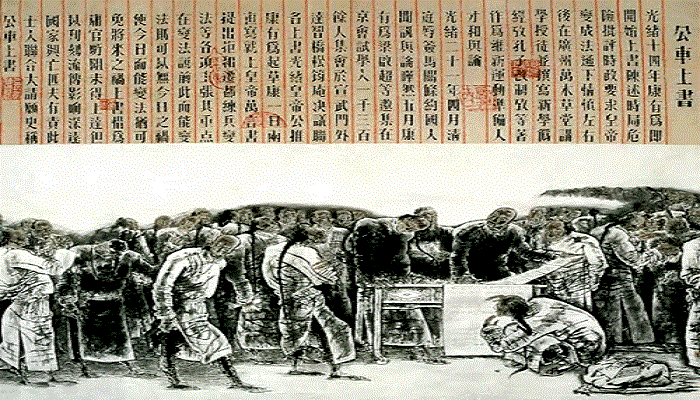 公車上書
光緒十四年康有為即
開始上書陳述時局危
險批評時政要求皇帝
變成法通下情慎左右
後在廣州萬木草堂講
學授徒並撰寫新學偽
經攷孔子改制攷等著
作為維新運動準備人
才和輿論
光緒二十一年四月清
庭辱簽馬關條約國人
聞訊輿論譁然五月康
有為梁啟超等邀集在
京會試舉人一千三百
餘人集會於宣武門外
達智橋松筠庵決議聯
名上書光緒皇帝公推
康有為起草康一日兩
夜寫就上皇帝萬言書
提出拒和遷都練兵變
法等各項主張其重點
在變法謂前此而能變
法則可以無今日之禍
使今日而能變法猶可
免將來之禍上書惜為
庸官所阻未得上達但
其刊刻流傳影響深遠
國家興亡匹夫有責此
士人聯合大請願史稱
公車上書